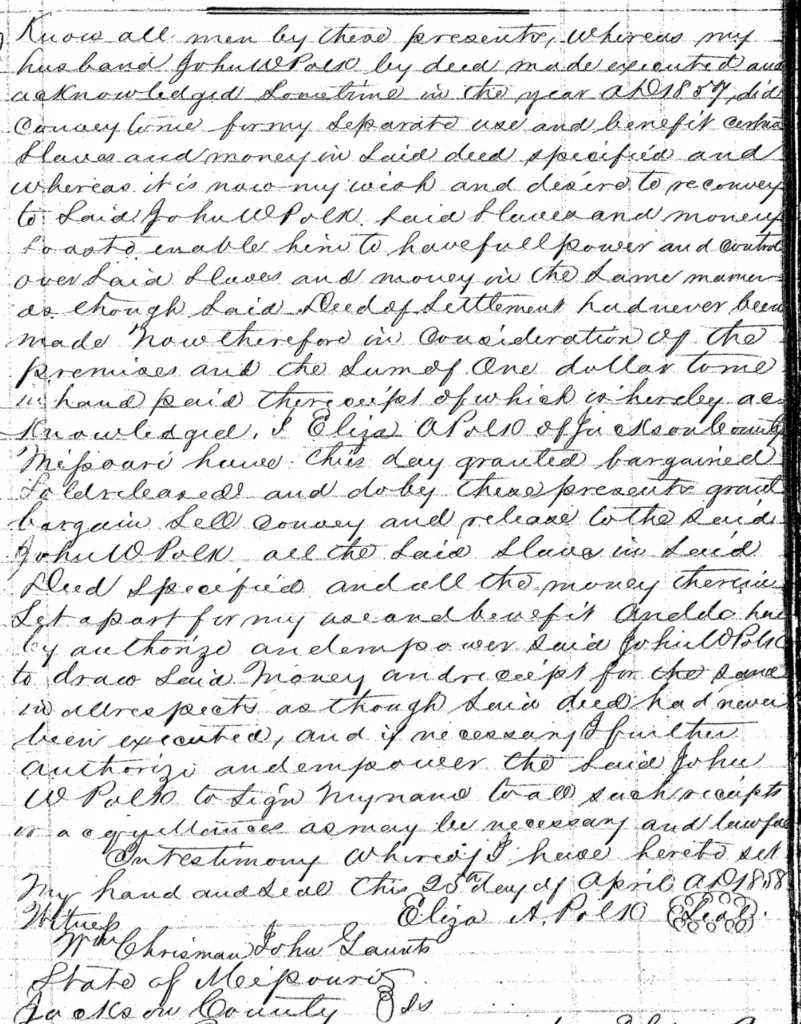 Know all men by these presents, Whereas my
husband John W Polk by deed made executed and
acknowledged Sometime in the year AD 1857, did
Convey to me for my Separate use and benefit certain
Slaves and money in Said deed specified and
whereas it is now my wish and desire to reconvey
to Said John W Polk Said Slaves and money
So as to enable him to have full power and control
over Said Slaves and money in the Same manner
as though Said Deed of Settlement had never been
made Now therefore in Consideration of the
premises and the Sum of One dollar to me
in hand paid the receipt of which is hereby ac
knowledged, I Eliza A Polk of Jackson County
Missouri have this day granted bargained
Sold released and do by these presents grant
bargain Sell Convey and release to the Said
John W Polk all the Said Slaves in Said
Deed Specified and all the money therein
Set apart for my use and benefit And do here
by authorize and empower Said John W Polk
to draw Said Money and receipt for the Same
in all respects as though Said deed had never
been executed, and if necessary I further
authorize and empower the Said John
W Polk to Sign My name to all such receipts
or acquittances as may be necessary and lawful
In testimony Whereof I have hereto set
My hand and Seal this 25th day of April AD 1858
Witness Eliza A. Polk (Seal).
Wm Chrisman John Gaunts
State of Missouri
Jackson County } Ss